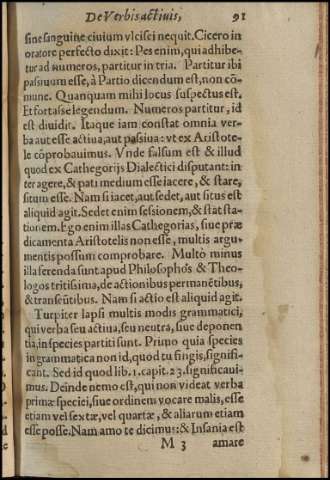 De Verbis actiuis, 91
sine sanguine ciuium vlcisci nequit. Cicero in
oratore perfecto dixit: Pes enim, qui adhibe-
tur ad numeros, partitur in tria. Partitur ibi
passiuum esse, à Partio dicendum est, non cō-
mune. Quanquam mihi locus suspectus est.
Et fortasse legendum. Numeros partitur, id
est diuidit. Itaque iam constat omnia ver-
ba aut esse actiua, aut passiua: vt ex Aristote-
le cōprobauimus. Vnde falsum est & illud
quod ex Cathegorijs Dialectici disputant: in-
ter agere, & pati medium esse iacere, & stare,
situm esse. Nam si iacet, aut sedet, aut situs est
aliquid agit. Sedet enim sessionem, & stat sta-
tionem. Ego enim illas Cathegorias, siue præ
dicamenta Aristotelis non esse, multis argu-
mentis possum comprobare. Multò minus
illa ferenda sunt apud Philosophos & Theo-
logos tritissima, de actionibus permanētibus,
& transeūtibus. Nam si actio est aliquid agit.
Turpiter lapsi multis modis grammatici,
qui verba seu actiua, seu neutra, siue deponen
tia, in species partiti sunt. Primo quia species
in grammatica non id, quod tu fingis, signifi-
cant. Sed id quod lib. 1. capit. 23. significaui-
mus. Deinde nemo est, qui non videat verba
primæ speciei, siue ordinem vocare malis, esse
etiam vel sextæ, vel quartæ, & aliarum etiam
esse posse. Nam amo te dicimus: & Insania est
M 3 amare